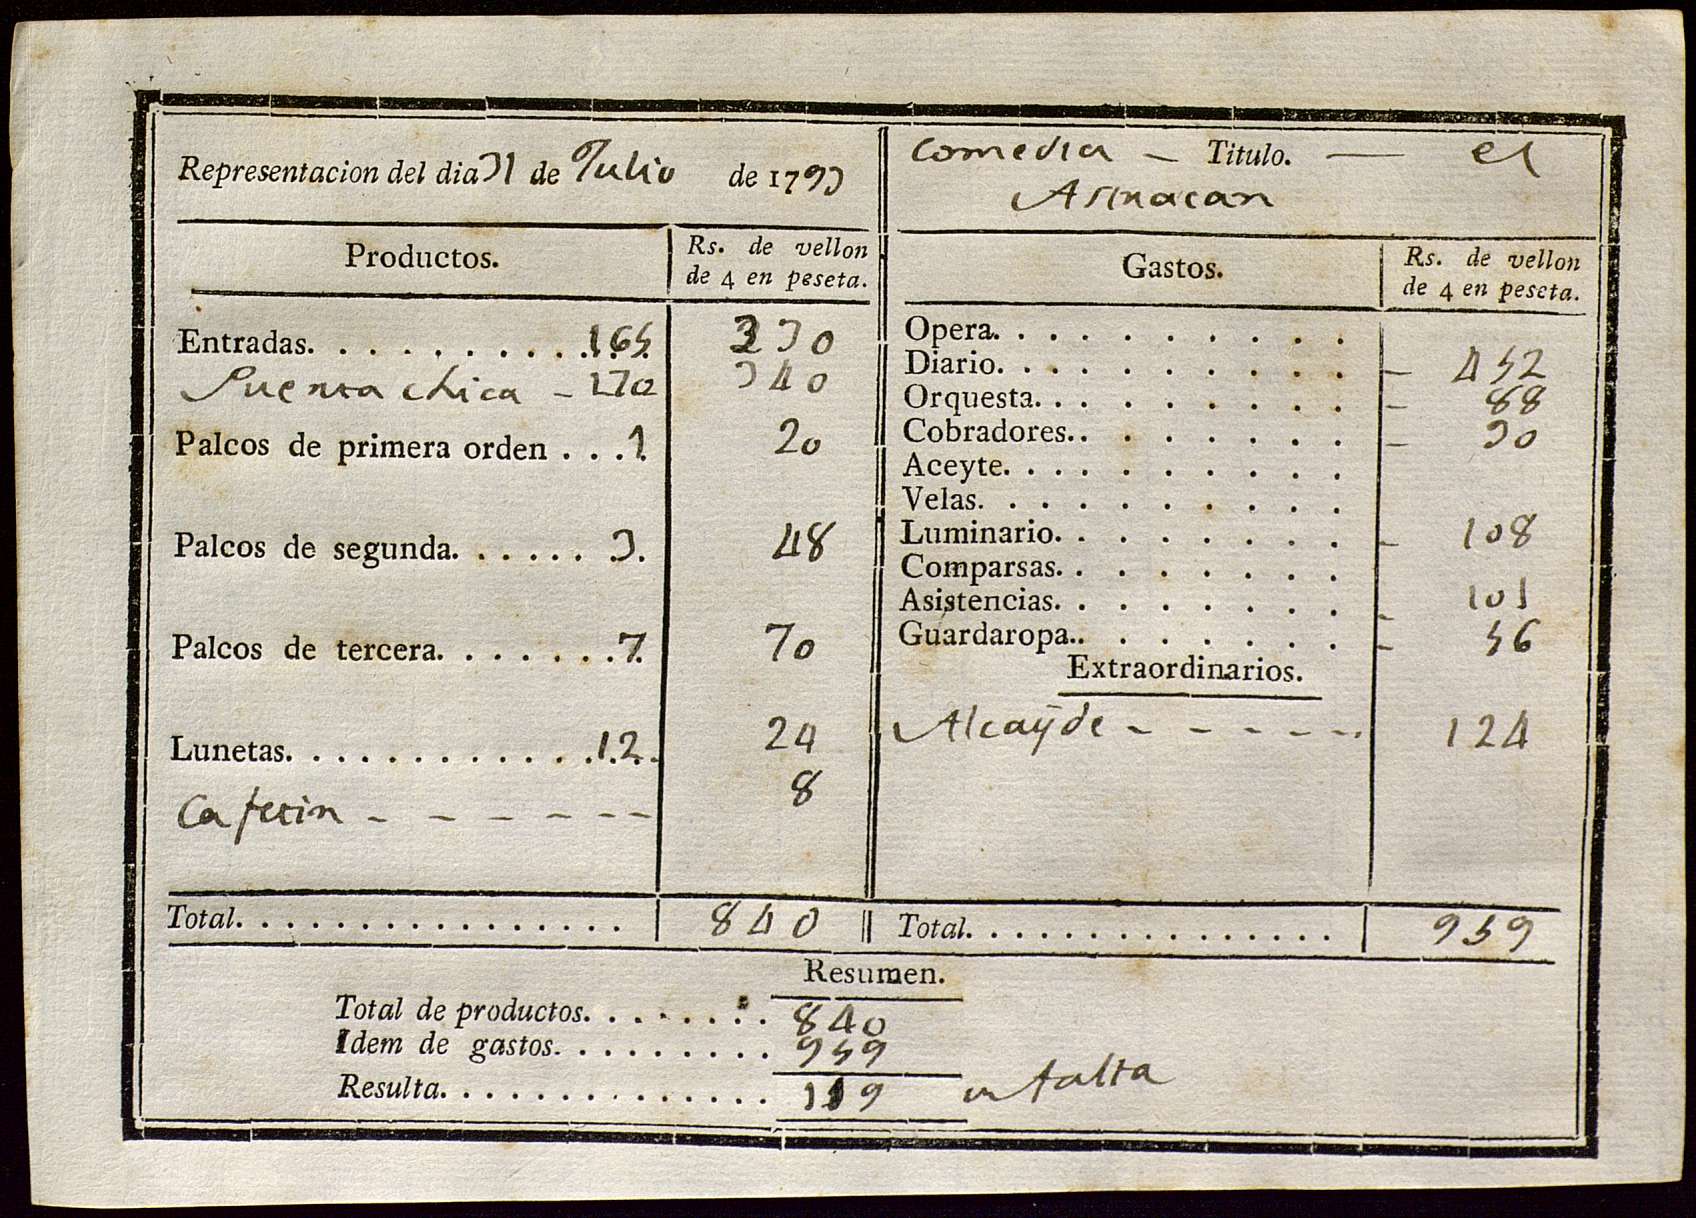 Representacion del dia 31 de Julio de 1793
Comedia - Titulo. — el
Astracan
Productos.
Rs. de vellon
de 4 en peseta.
Entradas. . . . . . . . . . . . . 165 330
Puerta chica - 170 340
Palcos de primera orden . . . 1. 20
Palcos de segunda. . . . . . 3. 48
Palcos de tercera. . . . . . . 7. 70
Lunetas. . . . . . . . . . . . . 12. 24
Cafetin - - - - - - - 8
Total. . . . . . . . . . . . . . . . 840
Gastos.
Rs. de vellon
de 4 en peseta.
Opera. . . . . . . . . .
Diario. . . . . . . . . . - 452
Orquesta. . . . . . . . . - 88
Cobradores.. . . . . . . - 30
Aceyte. . . . . . . . . .
Velas. . . . . . . . . .
Luminario. . . . . . . . - 108
Comparsas. . . . . . . .
Asistencias. . . . . . . . - 101
Guardaropa.. . . . . . . - 56
Extraordinarios.
Alcaÿde - - - - - -. 124
Total. . . . . . . . . . . . . . . 959
Resumen.
Total de productos. . . . . . . . 840
Idem de gastos. . . . . . . . . 959
Resulta. . . . . . . . . . . . . . 119 en falta